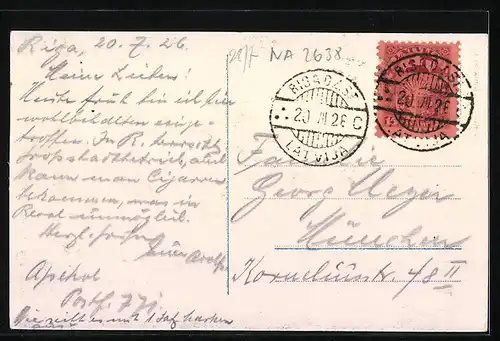 Riga, 20.7.26.
Meine Lieben!
Heute früh bin ich hier
wohlbehalten einge-
troffen. In R. herrscht
Grossstadtbetrieb, auch
kann man Cigarren
bekommen, was in
Reval unmöglich.
Herzl. Grüsse
Euer
Postf.
NA 2638
RIGA PASTS
20 VII 26 C
LATVIJA
RIGA PASTS
20 VII 26
LATVIJA
Familie
Georg
München
Korneliusstr. 48 II